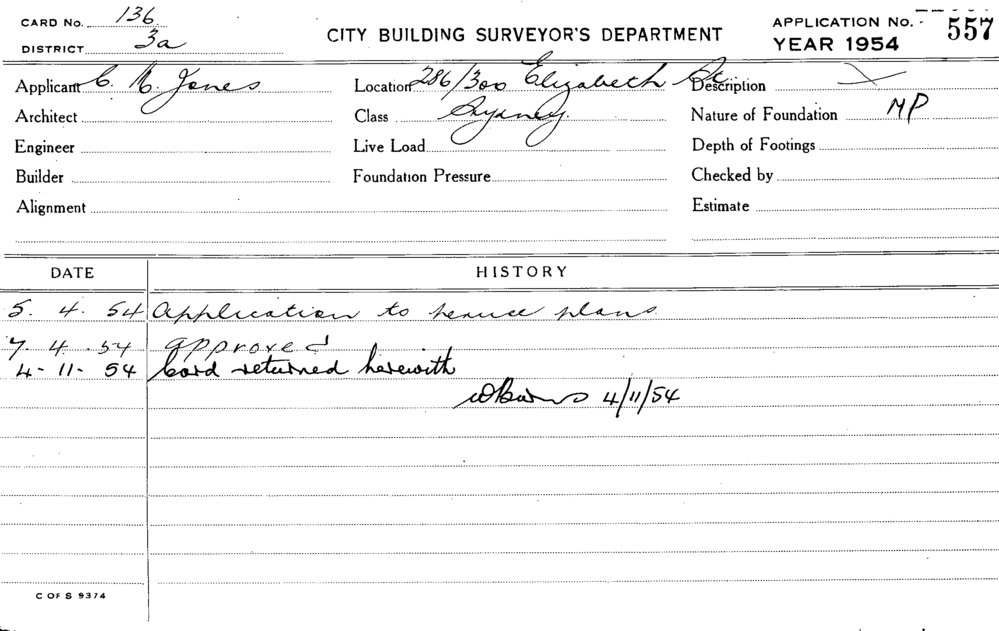 CARD No. 136
DISTRICT 3a
CITY BUILDING SURVEYOR'S DEPARTMENT
APPLICATION No. 557
YEAR 1954
Applicant C. M. Jones
Location 286/300 Elizabeth St
Description
Architect
Class Sydney
Nature of Foundation MP
Engineer
Live Load
Depth of Footings
Builder
Foundation Pressure
Checked by
Alignment
Estimate
DATE HISTORY
5. 4. 54 Application to peruse plans
7. 4. 54 approved
4-11-54 Card returned herewith
4/11/54
C OF S 9374